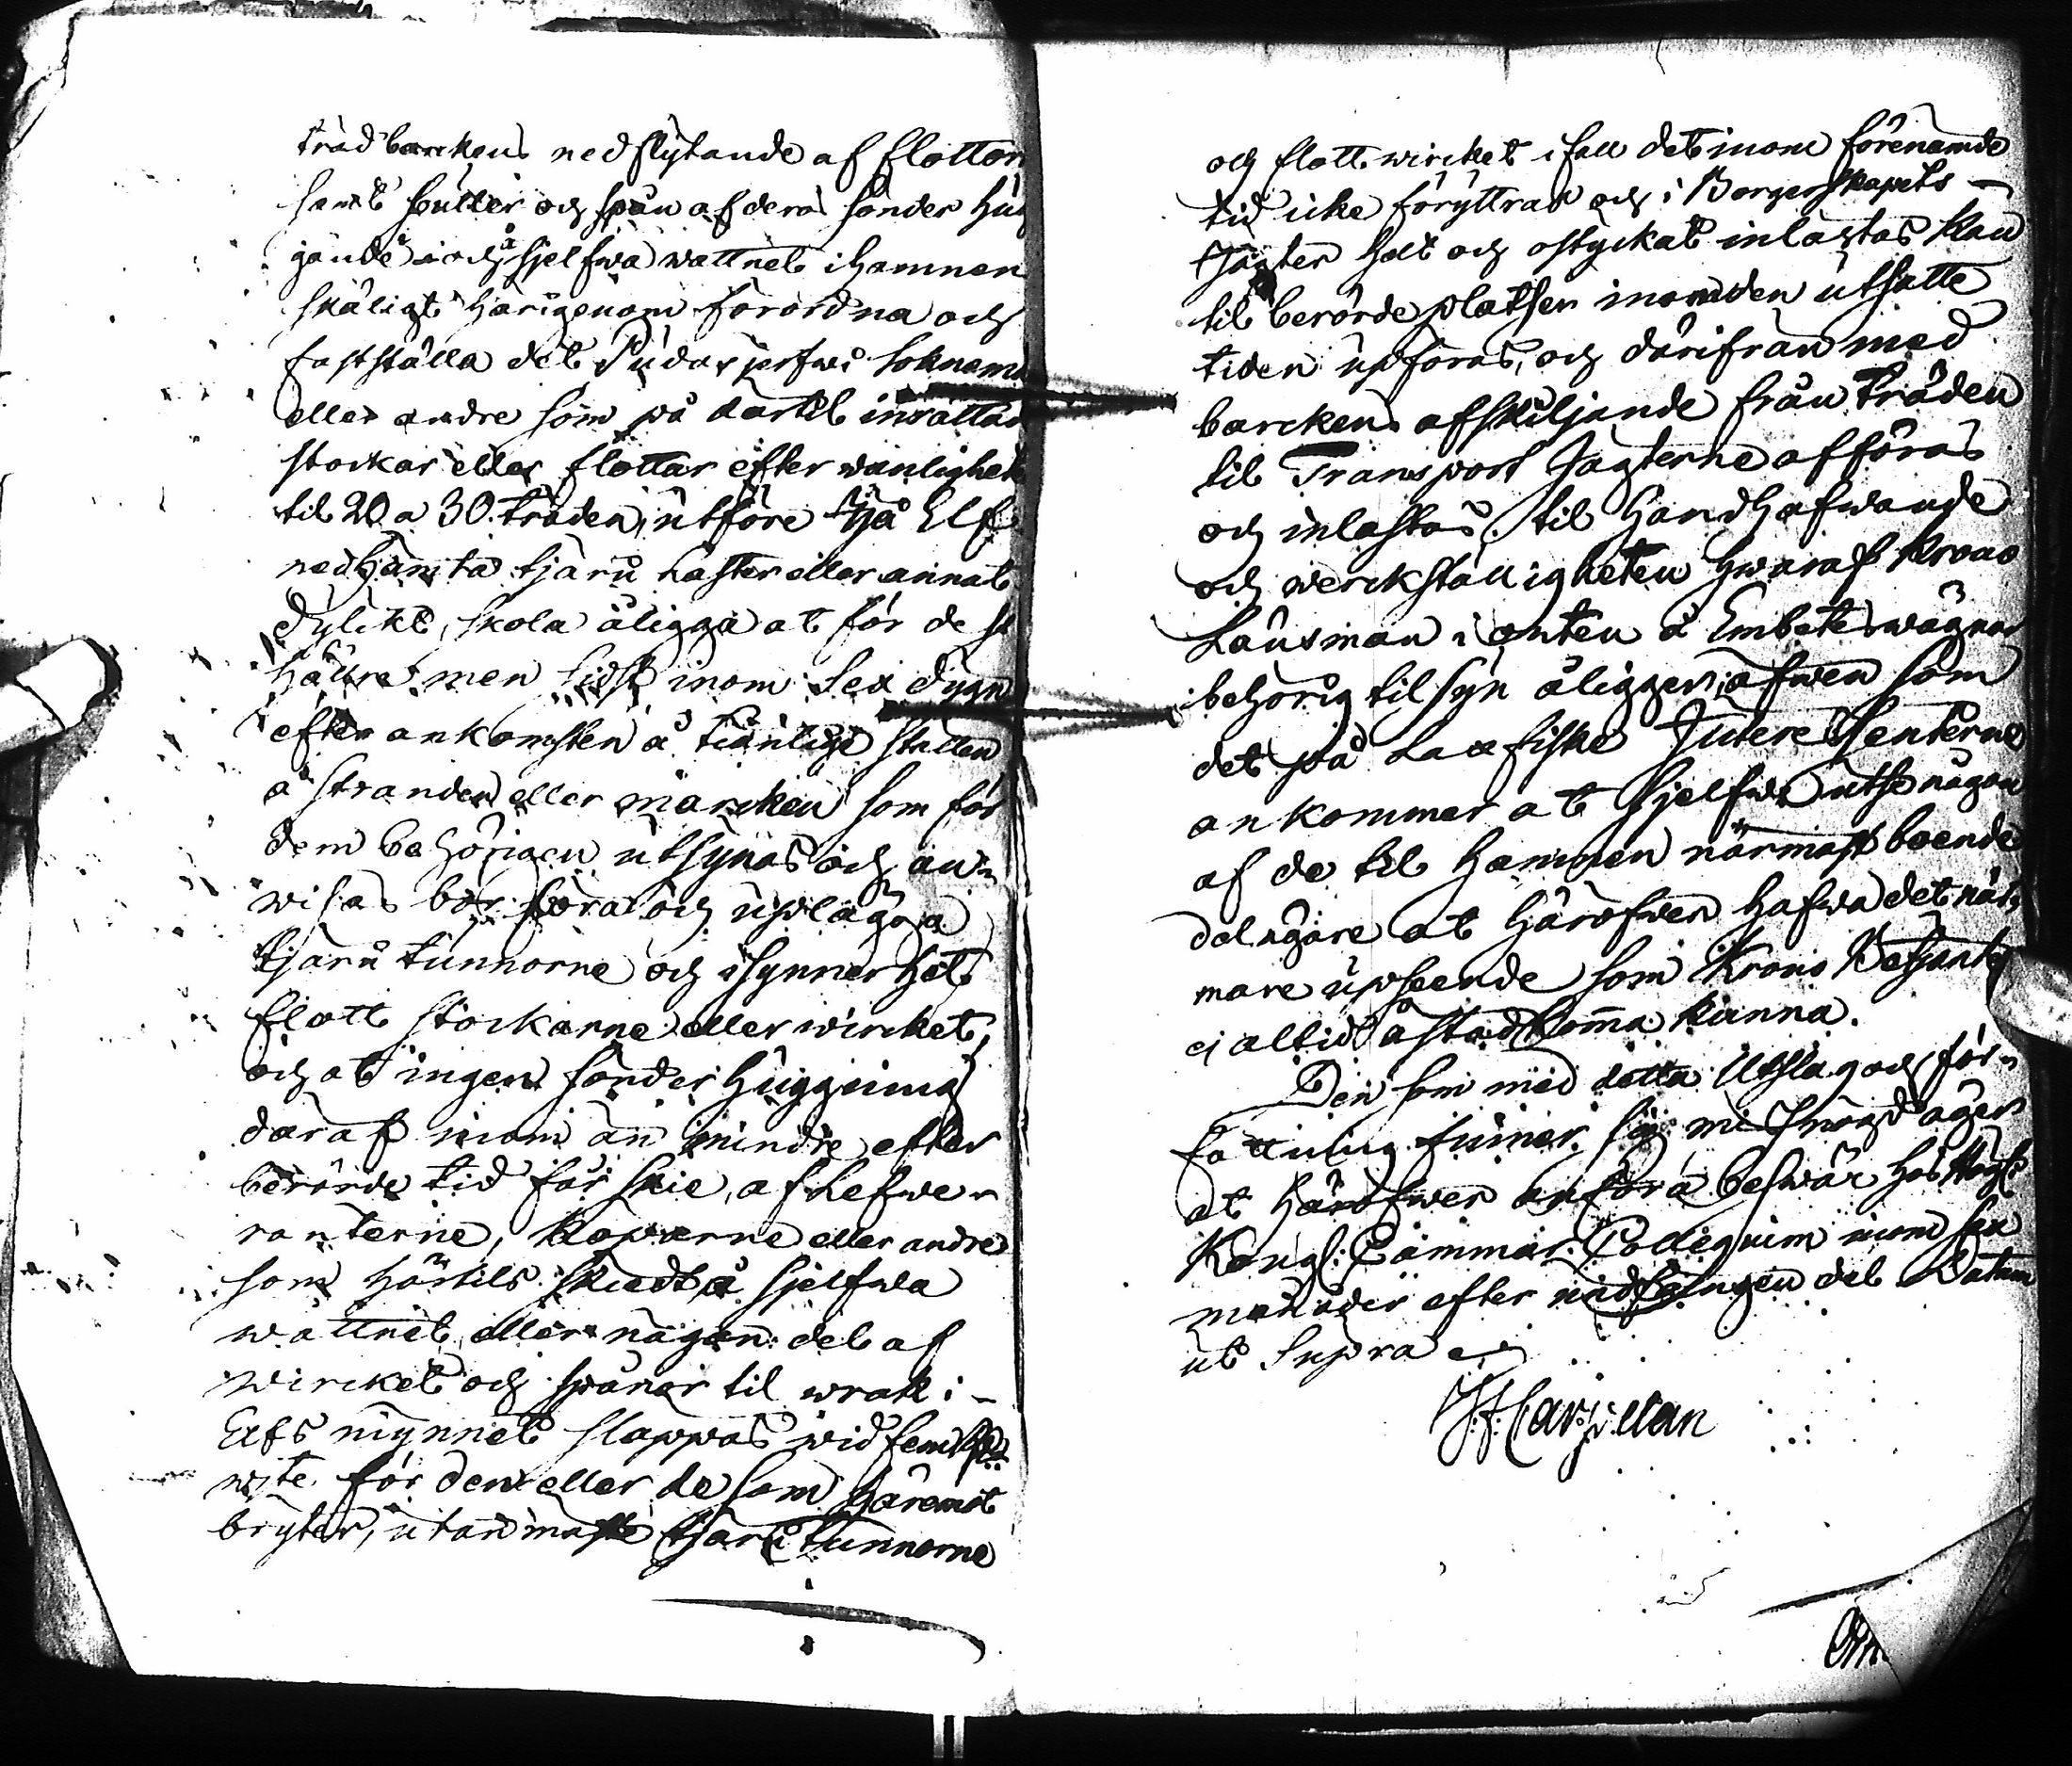 trädbarkens nedflytande af flottor
samt buller och spån af deras sönder hug
gande i och å sjelfwa wattnet i Hamnen
skäligt härigenom förordna och
fastställa det Pudasjerfwi Sokneme
eller andre som på därtil insattade
stockar eller flottar efter wanlighet
til 20 a 30. träden, utföre Ijå Elf
nedhämta tjäru laster eller annat
dylikt, skola åligga at för de st
hällre men sidst inom Sex dygn
efter ankomsten å tienlige ställen
å stranden eller marcken som för
dem behörigen utsynas och an
wisas bör föra och uplägga
tjäru tunnorne och i synnerhet
flott stockarne eller wircket,
och at ingen sönder huggning
däraf inom än mindre efter
berörde tid får skie, af Lefwe
ranterne, Köparne eller andre
som härtils skiedt å sjelfwa
wattnet, eller någon del af
wircket och spånor til wrak i
Elfs mynnet släppas wid fem
wite för den eller de som häremot
bryter, utan måste tjäru tunnorne
och flott wircket ifall det inom förenämde
tid icke föryttras och i Borgerskapets
Jagter helt och ostyckat inlastas kan
til berörde platser inom den utsatte
tiden upföras, och därifrån med
barckens afskiljande från träden
til Transport Jagterne afföras
och inlastas, til handhafwande
och werckställigheten hwaraf Krono
Länsman i orten å Embetes wägnar
behörig tilsyn åligger, äfwen som
det på Laxfiske Interessenterne
ankommer at sjelfwe utse någon
af de til hamnen närmast boende
delägare at häröfwer hafwa det när
mare upseende som Krono Betjente
ej altid åstadkomma kunna.
Den som med detta Utslag och för
fattning finner sig missnögd äger
at häröfwer anföra beswär hos Högl.
Kongl: Cammar: Collegium inom sex
månader efter undfåingen det Datum
ut Supra
J:F: Carpelan